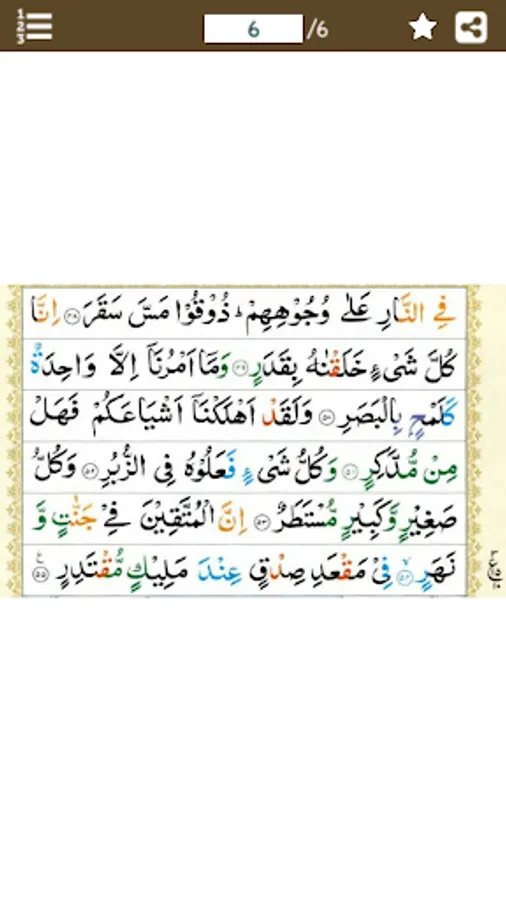 6 /6
فِی النَّارِ عَلٰی وُجُوْهِهِمْ ؕ ذُوْقُوْا مَسَّ سَقَرَ ﴿۴۸﴾ اِنَّا
كُلَّ شَیْءٍ خَلَقْنٰهُ بِقَدَرٍ ﴿۴۹﴾ وَمَاۤ اَمْرُنَاۤ اِلَّا وَاحِدَةٌ
كَلَمْحٍۭ بِالْبَصَرِ ﴿۵۰﴾ وَلَقَدْ اَهْلَكْنَاۤ اَشْیَاعَكُمْ فَهَلْ
مِنْ مُّدَّكِرٍ ﴿۵۱﴾ وَكُلُّ شَیْءٍ فَعَلُوْهُ فِی الزُّبُرِ ﴿۵۲﴾ وَكُلُّ
صَغِیْرٍ وَّكَبِیْرٍ مُّسْتَطَرٌ ﴿۵۳﴾ اِنَّ الْمُتَّقِیْنَ فِیْ جَنّٰتٍ وَّ
نَهَرٍ ﴿۵۴﴾ فِیْ مَقْعَدِ صِدْقٍ عِنْدَ مَلِیْكٍ مُّقْتَدِرٍ ﴿۵۵﴾